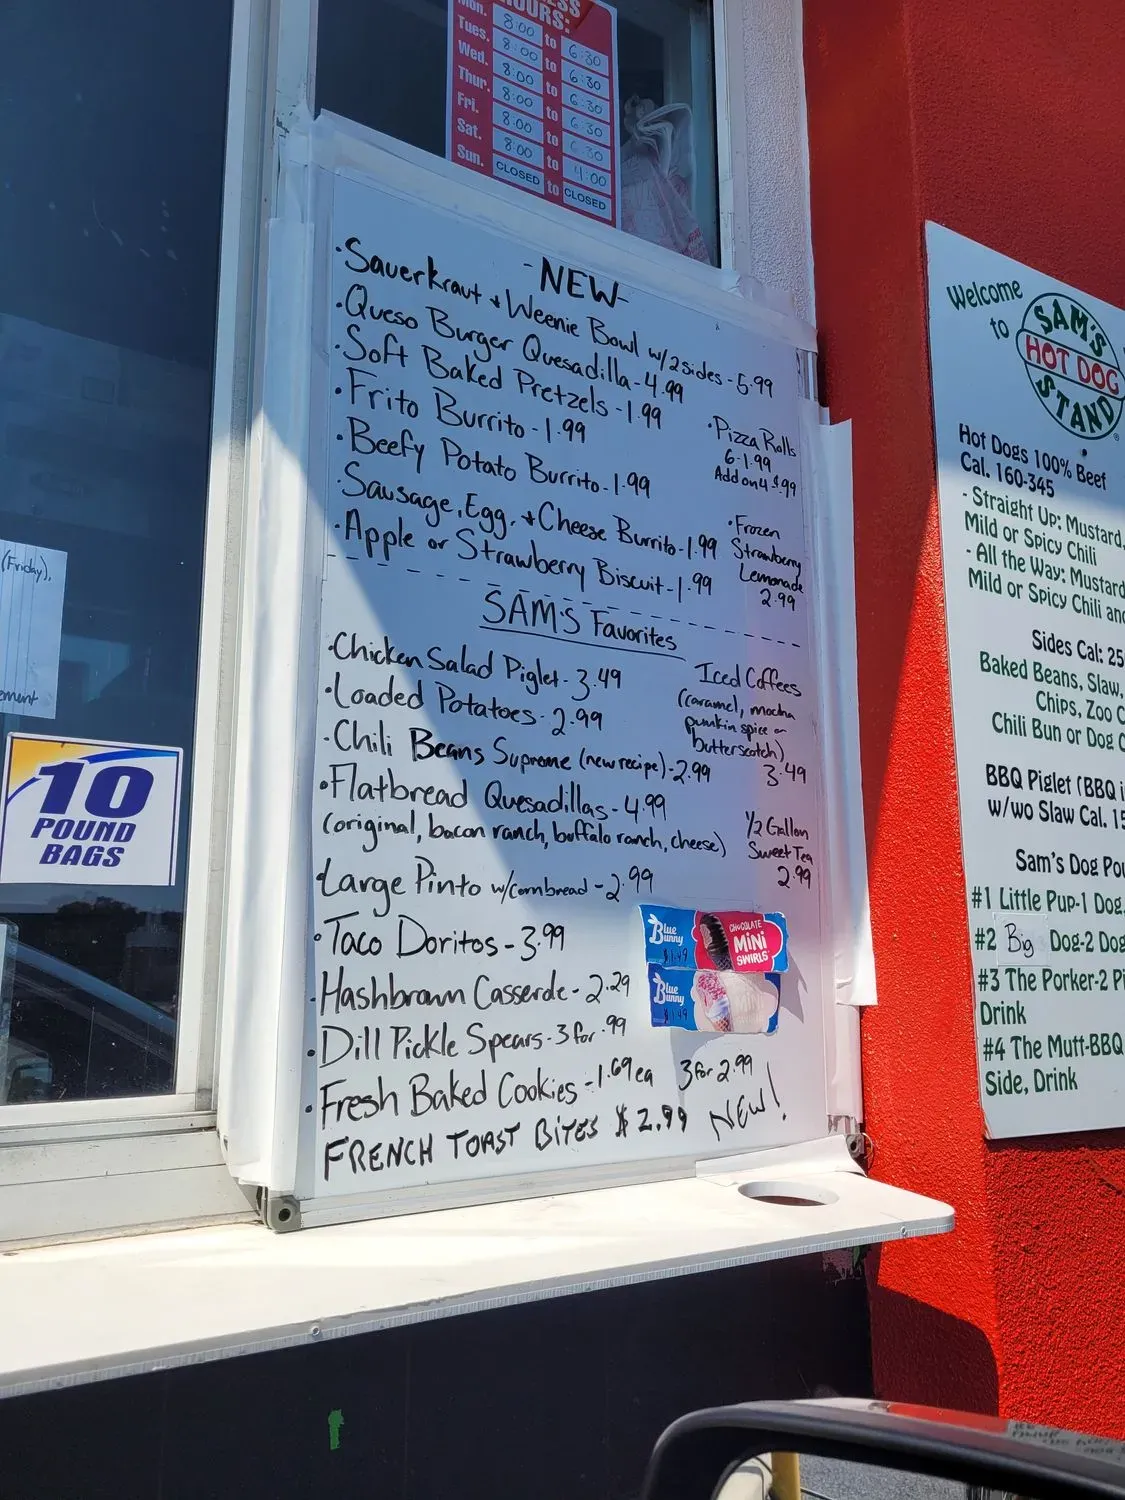 HOURS:
Mon. 8:00 to 6:30
Tues. 8:00 to 6:30
Wed. 8:00 to 6:30
Thur. 8:00 to 6:30
Fri. 8:00 to 6:30
Sat. 8:00 to 4:00
Sun. CLOSED to CLOSED
- NEW -
· Sauerkraut + Weenie Bowl w/ 2 sides - 5.99
· Queso Burger Quesadilla - 4.99
· Soft Baked Pretzels - 1.99
· Frito Burrito - 1.99
· Beefy Potato Burrito - 1.99
· Sausage, Egg, + Cheese Burrito - 1.99
· Apple or Strawberry Biscuit - 1.99
· Pizza Rolls
6 - 1.99
Add on 4 $.99
· Frozen
Strawberry
Lemonade
2.99
SAM'S Favorites
· Chicken Salad Piglet - 3.49
· Loaded Potatoes - 2.99
· Chili Beans Supreme (new recipe) - 2.99
· Flatbread Quesadillas - 4.99
(original, bacon ranch, buffalo ranch, cheese)
· Large Pinto w/ cornbread - 2.99
· Taco Doritos - 3.99
· Hashbrown Casserole - 2.29
· Dill Pickle Spears - 3 for .99
· Fresh Baked Cookies - 1.69 ea 3 for 2.99
FRENCH TOAST BITES $2.99 NEW!
Iced Coffees
(caramel, mocha
pumkin spice or
butterscotch)
3.49
1/2 Gallon
Sweet Tea
2.99
Blue
Bunny
$1.49
CHOCOLATE
MINI
SWIRLS
Blue
Bunny
$1.49
(Friday),
ement
10
POUND
BAGS
Welcome
to
SAM'S
HOT DOG
STAND
Hot Dogs 100% Beef
Cal. 160-345
- Straight Up: Mustard,
Mild or Spicy Chili
- All the Way: Mustard
Mild or Spicy Chili and
Sides Cal: 25
Baked Beans, Slaw,
Chips, Zoo C
Chili Bun or Dog C
BBQ Piglet (BBQ i
w/wo Slaw Cal. 15
Sam's Dog Pou
#1 Little Pup-1 Dog,
#2 Big Dog-2 Dog
#3 The Porker-2 Pi
Drink
#4 The Mutt-BBQ
Side, Drink